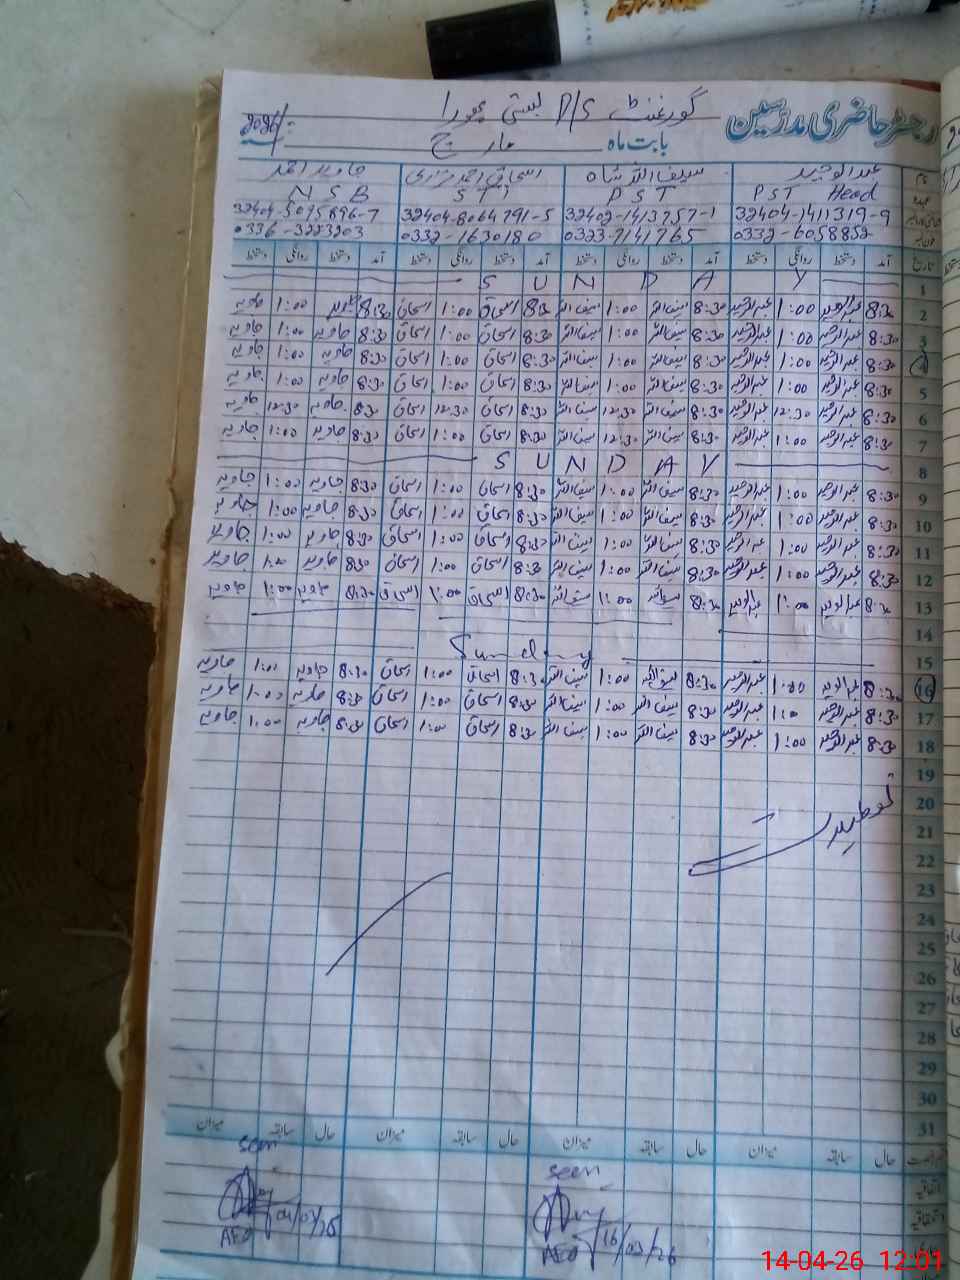 رجسٹر حاضری مدرسین
گورنمنٹ P/S بستی
بابت ماہ مارچ 2026
عبدالوحید سیف اللہ شاہ اسحاق احمد جاوید احمد
PST Head PST STI NSB
32404-1411319-9 32402-1413757-1 32404-8064791-5 32404-5095896-7
0332-6058852 0323-7141765 0332-1630180 0336-3223203
تاریخ آمد دستخط روانگی دستخط آمد دستخط روانگی دستخط آمد دستخط روانگی دستخط آمد دستخط روانگی دستخط
1 SUNDAY
2 8:30 عبدالوحید 1:00 عبدالوحید 8:30 سیف اللہ 1:00 سیف اللہ 8:30 اسحاق 1:00 اسحاق 8:30 جاوید 1:00 جاوید
3 8:30 عبدالوحید 1:00 عبدالوحید 8:30 سیف اللہ 1:00 سیف اللہ 8:30 اسحاق 1:00 اسحاق 8:30 جاوید 1:00 جاوید
4 8:30 عبدالوحید 1:00 عبدالوحید 8:30 سیف اللہ 1:00 سیف اللہ 8:30 اسحاق 1:00 اسحاق 8:30 جاوید 1:00 جاوید
5 8:30 عبدالوحید 1:00 عبدالوحید 8:30 سیف اللہ 1:00 سیف اللہ 8:30 اسحاق 1:00 اسحاق 8:30 جاوید 1:00 جاوید
6 8:30 عبدالوحید 12:30 عبدالوحید 8:30 سیف اللہ 12:30 سیف اللہ 8:30 اسحاق 12:30 اسحاق 8:30 جاوید 12:30 جاوید
7 8:30 عبدالوحید 1:00 عبدالوحید 8:30 سیف اللہ 12:30 سیف اللہ 8:30 اسحاق 1:00 اسحاق 8:30 جاوید 1:00 جاوید
8 SUNDAY
9 8:30 عبدالوحید 1:00 عبدالوحید 8:30 سیف اللہ 1:00 سیف اللہ 8:30 اسحاق 1:00 اسحاق 8:30 جاوید 1:00 جاوید
10 8:30 عبدالوحید 1:00 عبدالوحید 8:30 سیف اللہ 1:00 سیف اللہ 8:30 اسحاق 1:00 اسحاق 8:30 جاوید 1:00 جاوید
11 8:30 عبدالوحید 1:00 عبدالوحید 8:30 سیف اللہ 1:00 سیف اللہ 8:30 اسحاق 1:00 اسحاق 8:30 جاوید 1:00 جاوید
12 8:30 عبدالوحید 1:00 عبدالوحید 8:30 سیف اللہ 1:00 سیف اللہ 8:30 اسحاق 1:00 اسحاق 8:30 جاوید جاوید
13 8:30 عبدالوحید 1:00 عبدالوحید 8:30 سیف اللہ 1:00 سیف اللہ 8:30 اسحاق 1:00 اسحاق 8:30 جاوید 1:00 جاوید
14
15 Sunday
16 8:30 عبدالوحید 1:00 عبدالوحید 8:30 سیف اللہ 1:00 سیف اللہ 8:30 اسحاق 1:00 اسحاق 8:30 جاوید 1:00 جاوید
17 8:30 عبدالوحید 1:0 عبدالوحید 8:30 سیف اللہ 1:00 سیف اللہ 8:30 اسحاق 1:00 اسحاق 8:30 جاوید 1:00 جاوید
18 8:30 عبدالوحید 1:00 عبدالوحید 8:30 سیف اللہ 1:00 سیف اللہ 8:30 اسحاق 1:00 اسحاق 8:30 جاوید 1:00 جاوید
19
20
تعطیل
21
22
23
24
25
26
27
28
29
30
31
حال سابقہ میزان حال سابقہ میزان حال سابقہ میزان
اتفاقیہ
seen seen
16/03/26 04/03/26
AEO AEO
14-04-26 12:01